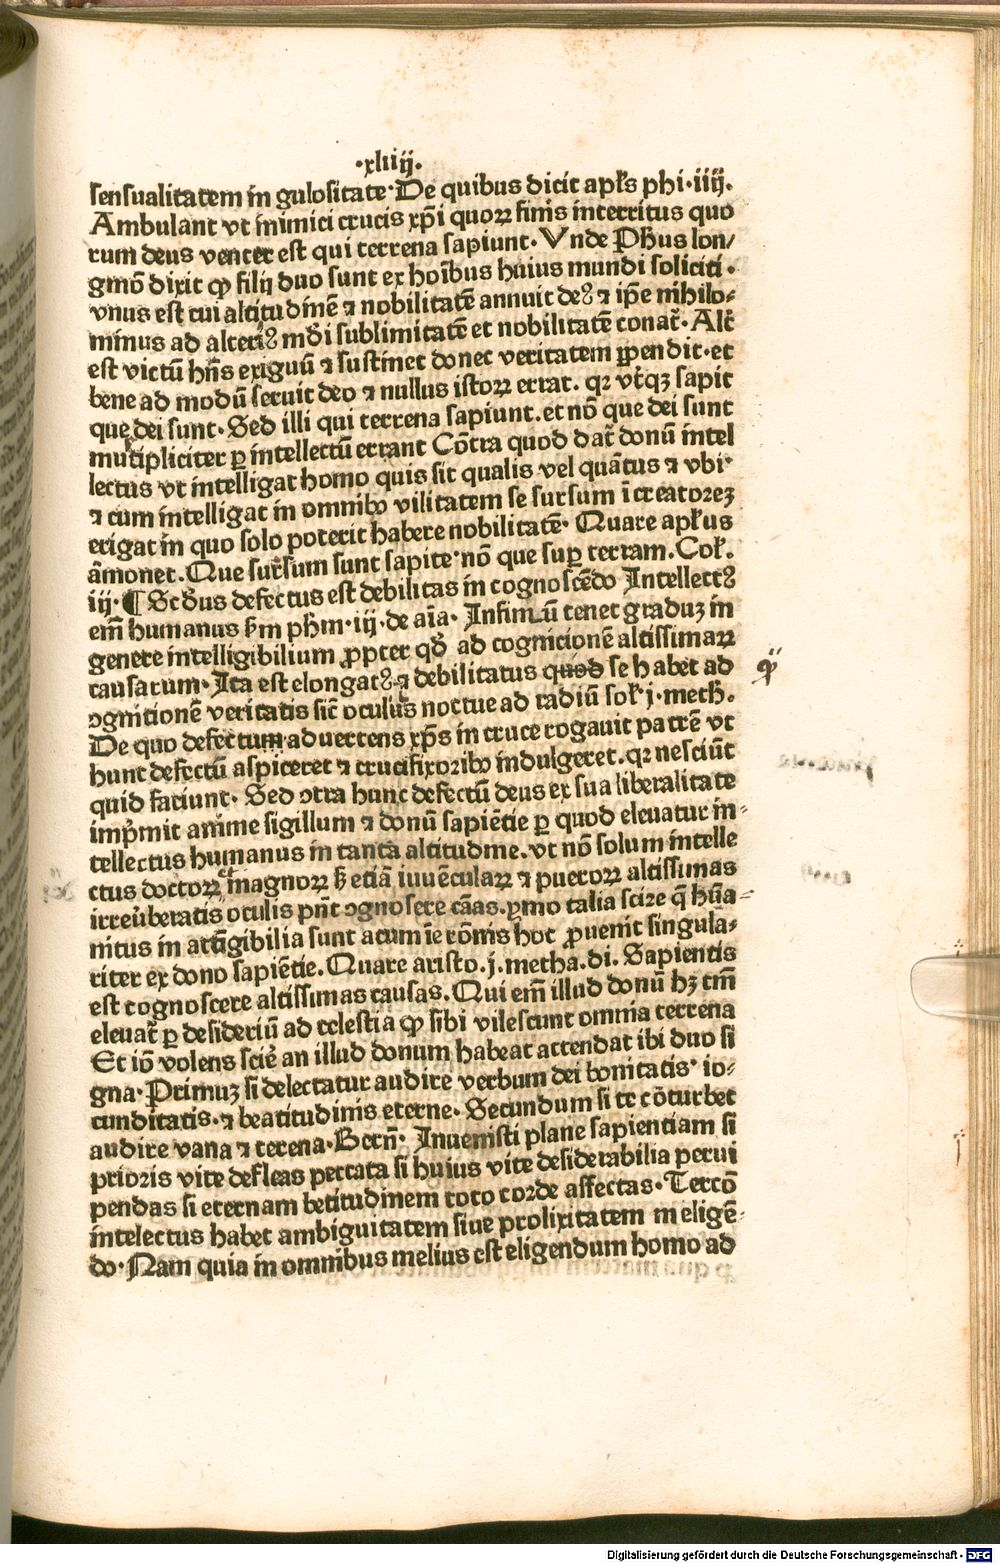 ·xliiij·
sensualitatem in gulositate· De quibus dicit apl̄s phi·iiij·
Ambulant vt inimici crucis xp̄i quoꝝ finis interritus quo
rum deus venter est qui terrena sapiunt· Vnde Ph̄us lon/
gmō dixit ꝙ filij duo sunt ex hoībus huius mundi soliciti·
vnus est cui altitudinē ⁊ nobilitatē annuit deꝰ ⁊ ip̄e nihilo-
minus ad alteriꝰ mūdi sublimitatē et nobilitatē conat̄· Alt̄
est victū hn̄s exiguū ⁊ sustinet donec veritatem ꝓpendit·et
bene ad modū seruit deo ⁊ nullus istoꝝ errat· qꝛ vtiqꝫ sapit
que dei sunt· Sed illi qui terrena sapiunt·et nō que dei sunt
multipliciter ꝑ intellectū errant Cōtra quod dat̄ donū intel
lectus vt intelligat homo quis sit qualis vel quātus ⁊ vbi·
⁊ cum intelligat in omnibꝰ vilitatem se sursum ī creatoreꝫ
erigat in quo solo poterit habere nobilitatē· Quare apl̄us
āmonet· Que sursum sunt sapite·nō que suꝑ terram· Col̄·
iij· ¶ Scd̄us defectus est debilitas in cognoscēdo Intellectꝰ
em̄ humanus s̄m ph̄m·iij·de aīa· Infimū tenet graduꝫ in
genere intelligibilium ꝓpter qd̄ ad cognicionē altissimaꝝ
causarum· Ita est elongatꝰ ⁊ debilitatus quod se habet ad
ꝯgnitionē veritatis sic̄ oculus noctue ad radiū sol̄ j·meth̄·
De quo defectum aduertens xp̄s in cruce rogauit patrē vt
hunc defectū aspiceret ⁊ crucifixoribꝰ indulgeret·qꝛ nesciūt
quid faciunt· Sed ꝯtra hunc defectū deus ex sua liberalitate
imp̄mit anime sigillum ⁊ donū sapiētie ꝑ quod eleuatur in-
tellectus humanus in tanta altitudine·vt nō solum intelle
ctus doctoꝝ magnoꝝ sꝫ etiā iuuēculaꝝ ⁊ pueroꝝ altissimas
irreūberatis oculis pn̄t ꝯgnoscere cāas·p̄mo talia scire q̄ hūa-
nitus in attīgibilia sunt acumīe rōnis hoc ꝓuenit singula-
riter ex dono sapiētie· Quare aristo·j·metha·di· Sapientis
est cognoscere altissimas causas· Qui em̄ illud donū hꝫ tm̄
eleuat̄ ꝑ desideriū ad celestia ꝙ sibi vilescunt omnia terrena
Et iō volens scire an illud donum habeat attendat ibi duo si
gna· Primuꝫ si delectatur audire verbum dei bonitatis· io-
cunditatis·⁊ beatitudinis eterne· Secundum si te cōturbet
audire vana ⁊ terena· Bern̄· Inuenisti plane sapientiam si
prioris vite defleas peccata si huius vite desiderabilia perui
pendas si eternam betitudinem toto corde affectas· Tercō
intelectus habet ambiguitatem siue prolixitatem in eligē-
do· Nam quia in omnibus melius est eligendum homo ad
Digitalisierung gefördert durch die Deutsche Forschungsgemeinschaft - DFG